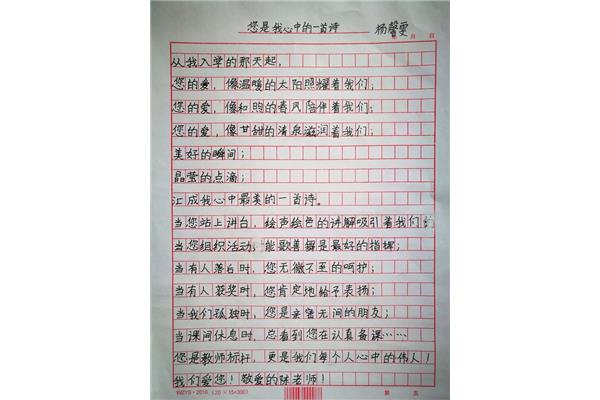 您是我心中的一首诗 杨馨雯
月 日
从我入学的那天起，
您的爱，像温暖的太阳照耀着我们；
您的爱，像和煦的春风陪伴着我们；
您的爱，像甘甜的清泉滋润着我们；
美好的瞬间；
晶莹的点滴；
汇成我心中最美的一首诗。
当您站上讲台，绘声绘色的讲解吸引着我们的
当您组织活动，能歌善舞是最好的指挥；
当有人落白时，您无微不至的呵护；
当有人获奖时，您肯定地给予表扬；
当我们孤独时，您是亲密无间的朋友；
当课间休息时，总看到您在认真备课……
您是教师标杆，更是我们每个人心中的伟人！
我们爱您！敬爱的陈老师！
WZYS·2016 （20×15=300） 第 页